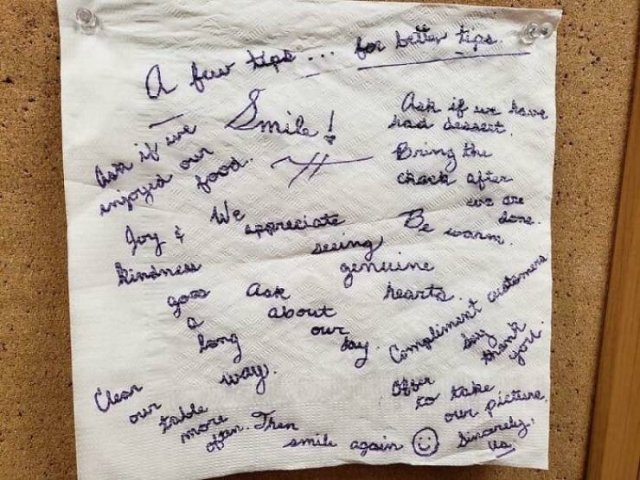 A few tips... for better tips.
Smile!
Ask if we
enjoyed our
food.
Ask if we have
had dessert.
Bring the
check after
we are
done.
Joy &
kindness
goes
a
long
way.
We
appreciate
seeing
genuine
hearts.
Be warm.
Ask
about
our
day.
Compliment customers
Say
thank
you.
Clear
our
table
more
often. Then
smile again
Offer
to take
our picture.
Sincerely,
Us.